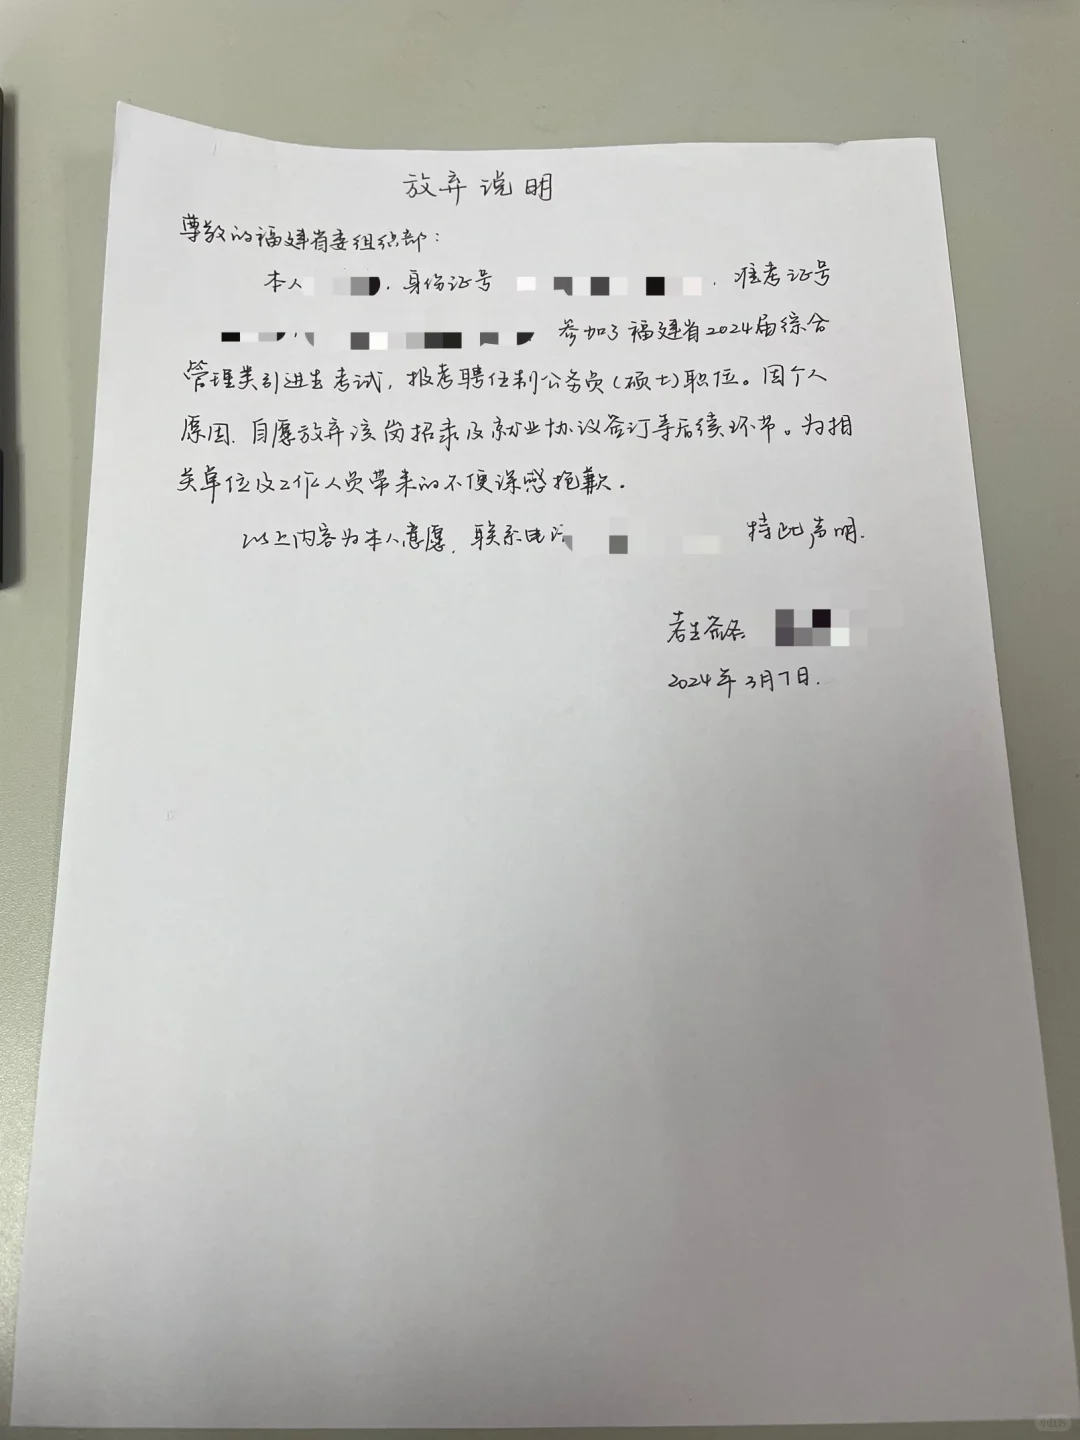 放弃说明
尊敬的福建省委组织部：
本人，身份证号，准考证号
，参加了福建省2024届综合
管理类引进生考试，报考聘任制公务员（硕士）职位。因个人
原因，自愿放弃该岗招录及就业协议签订等后续环节。为相
关单位及工作人员带来的不便深感抱歉。
以上内容为本人意愿，联系电话 特此声明.
考生签名
2024年3月7日.
小红书